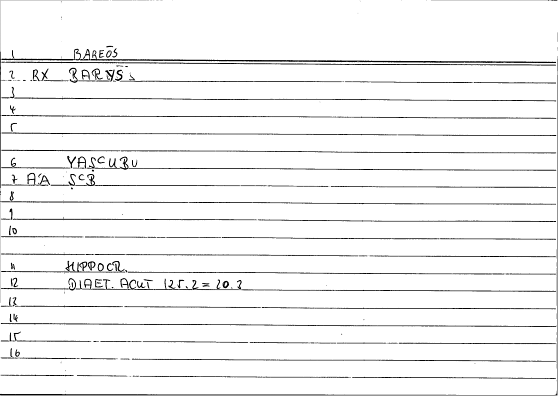 1 BAREŌS
2 RX BARYS
3
4
5
6 YAṢCUBU
7 AA ṢCB
8
9
10
11 HIPPOCR.
12 DIAET. ACUT 125.2 = 20.2
13
14
15
16